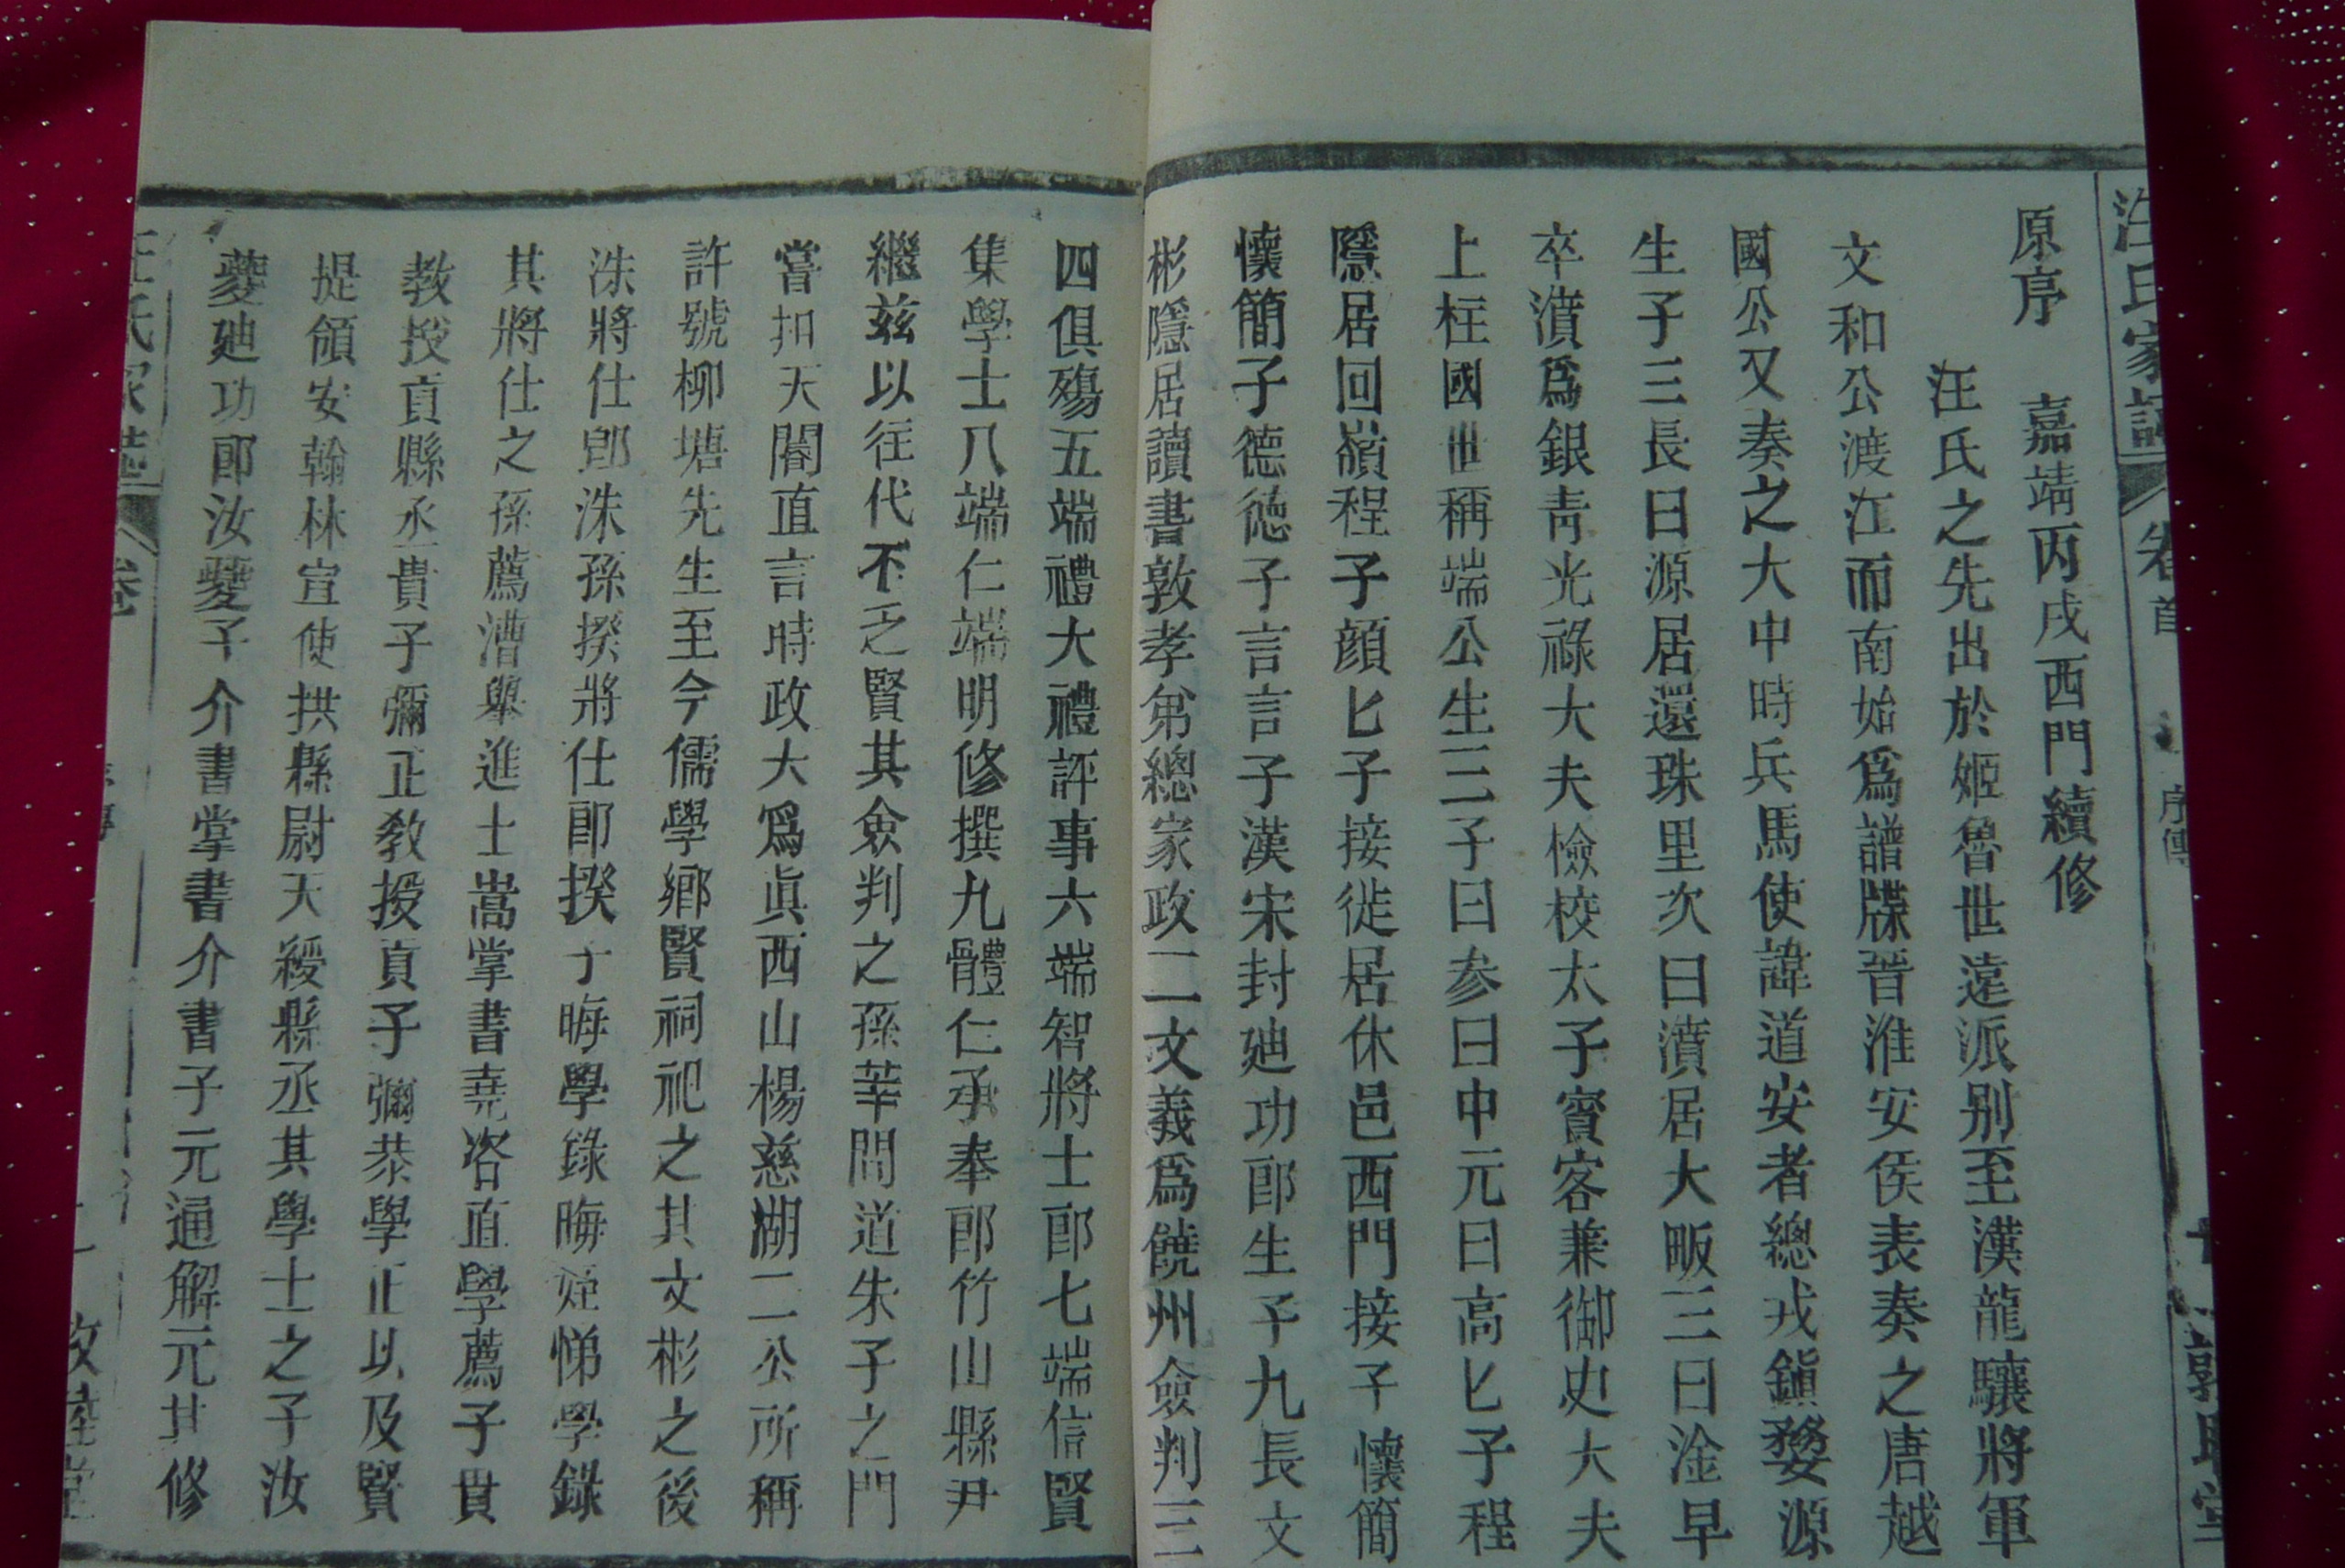 汪氏家譜 卷首 序傳 敦睦堂
原序 嘉靖丙戌西門續修
汪氏之先出於姬魯世遠派別至漢龍驤將軍
文和公渡江而南始爲譜牒晉淮安侯表奏之唐越
國公又奏之大中時兵馬使諱道安者總戎鎭婺源
生子三長曰源居還珠里次曰濆居大畈三曰淦早
卒濆爲銀靑光祿大夫檢校太子賓客兼御史大夫
上柱國世稱端公生三子曰參曰中元曰高匕子程
隱居回嶺程子顔匕子接徙居休邑西門接子懷簡
懷簡子德德子言言子漢宋封廸功郎生子九長文
彬隱居讀書敦孝弟總家政二文義爲饒州僉判三
四俱殤五端禮大禮評事六端智將士郎七端信賢
集學士八端仁端明修撰九體仁承奉郎竹山縣尹
繼兹以往代不乏賢其僉判之孫莘問道朱子之門
嘗扣天閽直言時政大爲眞西山楊慈湖二公所稱
許號柳塘先生至今儒學鄉賢祠祀之其文彬之後
洙將仕郎洙孫揆將仕郎揆子晦學錄晦姪悌學錄
其將仕之孫薦漕舉進士嵩掌書堯咨直學薦子貫
教授貢縣丞貴子彌正教授貢子彌恭學正以及賢
提領安翰林宣使拱縣尉天綬縣丞其學士之子汝
夔廸功郎汝夔子介書掌書介書子元通解元其修
汪氏家譜 卷 敦睦堂